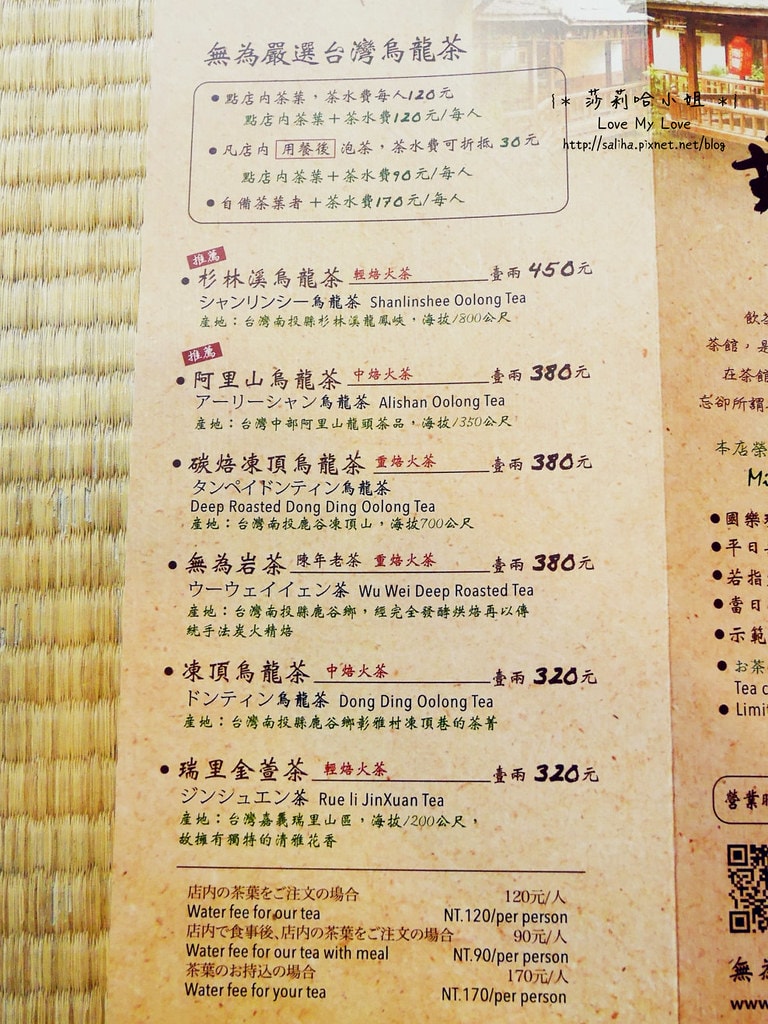 無為嚴選台灣烏龍茶
●點店內茶葉，茶水費每人120元
點店內茶葉＋茶水費120元/每人
●凡店內 用餐後 泡茶，茶水費可折抵 30元
點店內茶葉＋茶水費90元/每人
●自備茶葉者＋茶水費170元/每人
|* 莎莉哈小姐 *|
Love My Love
http://saliha.pixnet.net/blog
推薦
●杉林溪烏龍茶 輕焙火茶 壹兩 450元
シャンリンシー烏龍茶 Shanlinshee Oolong Tea
産地：台灣南投縣杉林溪龍鳳峽，海拔1800公尺
推薦
●阿里山烏龍茶 中焙火茶 壹兩 380元
アーリーシャン烏龍茶 Alishan Oolong Tea
産地：台灣中部阿里山龍頭茶品，海拔1350公尺
●碳焙凍頂烏龍茶 重焙火茶 壹兩 380元
タンペイドンティン烏龍茶
Deep Roasted Dong Ding Oolong Tea
産地：台灣南投鹿谷凍頂山，海拔700公尺
●無為岩茶 陳年老茶 重焙火茶 壹兩 380元
ウーウェイイェン茶 Wu Wei Deep Roasted Tea
産地：台灣南投縣鹿谷鄉，經完全發酵烘焙再以傳
統手法炭火精焙
●凍頂烏龍茶 中焙火茶 壹兩 320元
ドンティン烏龍茶 Dong Ding Oolong Tea
産地：台灣南投縣鹿谷鄉彰雅村凍頂巷的茶菁
●瑞里金萱茶 輕焙火茶 壹兩 320元
ジンシュエン茶 Rue li JinXuan Tea
産地：台灣嘉義瑞里山區，海拔1200公尺，
故擁有獨特的清雅花香
店内の茶葉をご注文の場合 120元/人
Water fee for our tea NT.120/per person
店内で食事後、店内の茶葉をご注文の場合 90元/人
Water fee for our tea with meal NT.90/per person
茶葉のお持込の場合 170元/人
Water fee for your tea NT.170/per person
飲茶
茶館，是
在茶館
忘卻所謂
本店榮
●國樂
●平日
●若指
●當日
●示範
●お茶
Tea c
●Limit
營業
無為
www